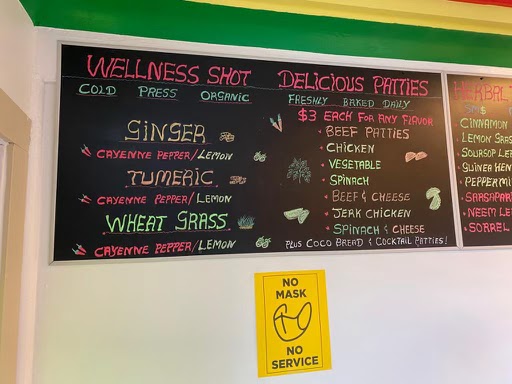 WELLNESS SHOT
COLD PRESS ORGANIC
GINGER
CAYENNE PEPPER/LEMON
TUMERIC
CAYENNE PEPPER/LEMON
WHEAT GRASS
CAYENNE PEPPER/LEMON
DELICIOUS PATTIES
FRESHLY BAKED DAILY
$3 EACH FOR ANY FLAVOR
BEEF PATTIES
CHICKEN
VEGETABLE
SPINACH
BEEF & CHEESE
JERK CHICKEN
SPINACH & CHEESE
PLUS COCO BREAD & COCKTAIL PATTIES!
HERBAL
CINNAMON
LEMON GRAS
SOURSOP LE
GUINEA HEN
PEPPERMI
SARSAPAR
NEEM LE
SORREL
NO
MASK
NO
SERVICE